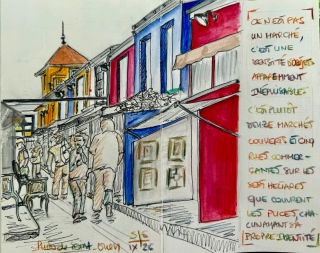 CE N'EST PAS
UN MARCHÉ,
C'EST UNE
D'OBJETS
APPAREMMENT
INÉPUISABLE.
C'EST PLUTÔT
DOUZE MARCHÉS
COUVERTS ET CINQ
RUES COMMER-
ÇANTES SUR LES
SEPT HECTARES
QUE COUVRENT
LES PUCES, CHA-
CUN AYANT SA
PROPRE IDENTITÉ
S/E
IX 26